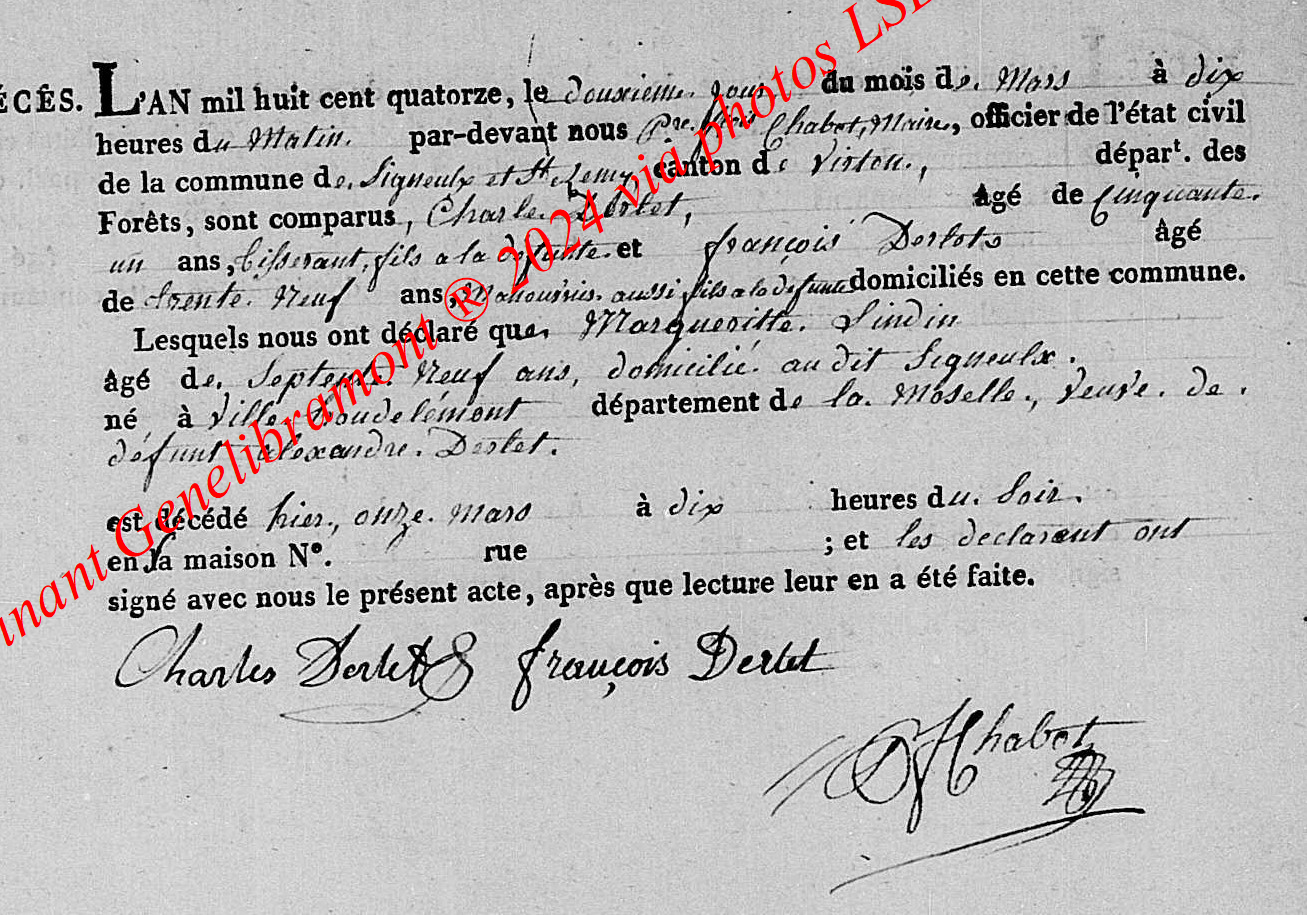 ÉCÉS. L'AN mil huit cent quatorze, le douxieme jour du mois de Mars à dix
heures du Matin. par-devant nous Pre. Chabot, Maire, officier de l'état civil
de la commune de Signeulx et St. Remy, canton de Virton, départ. des
Forêts, sont comparus, Charle Derlet, âgé de Cinquante.
un ans, Tisserant, fils a la defunte. et françois Derlots âgé
de trente. Neuf ans, aussi fils a la defunte domiciliés en cette commune.
Lesquels nous ont déclaré que Margueritte. Lindin
âgé de Septent. Neuf ans, domicilié au dit Signeulx.
né à Ville houdelémont département de la Moselle, veuve. de.
défunt alexandre. Derlet.
est décédé hier, onze. mars à dix heures du Soir.
en sa maison N°. rue ; et les declarent ont
signé avec nous le présent acte, après que lecture leur en a été faite.
Charles Derlet françois Derlet
Chabot
nant Genelibramont ® 2024 via photos LSE